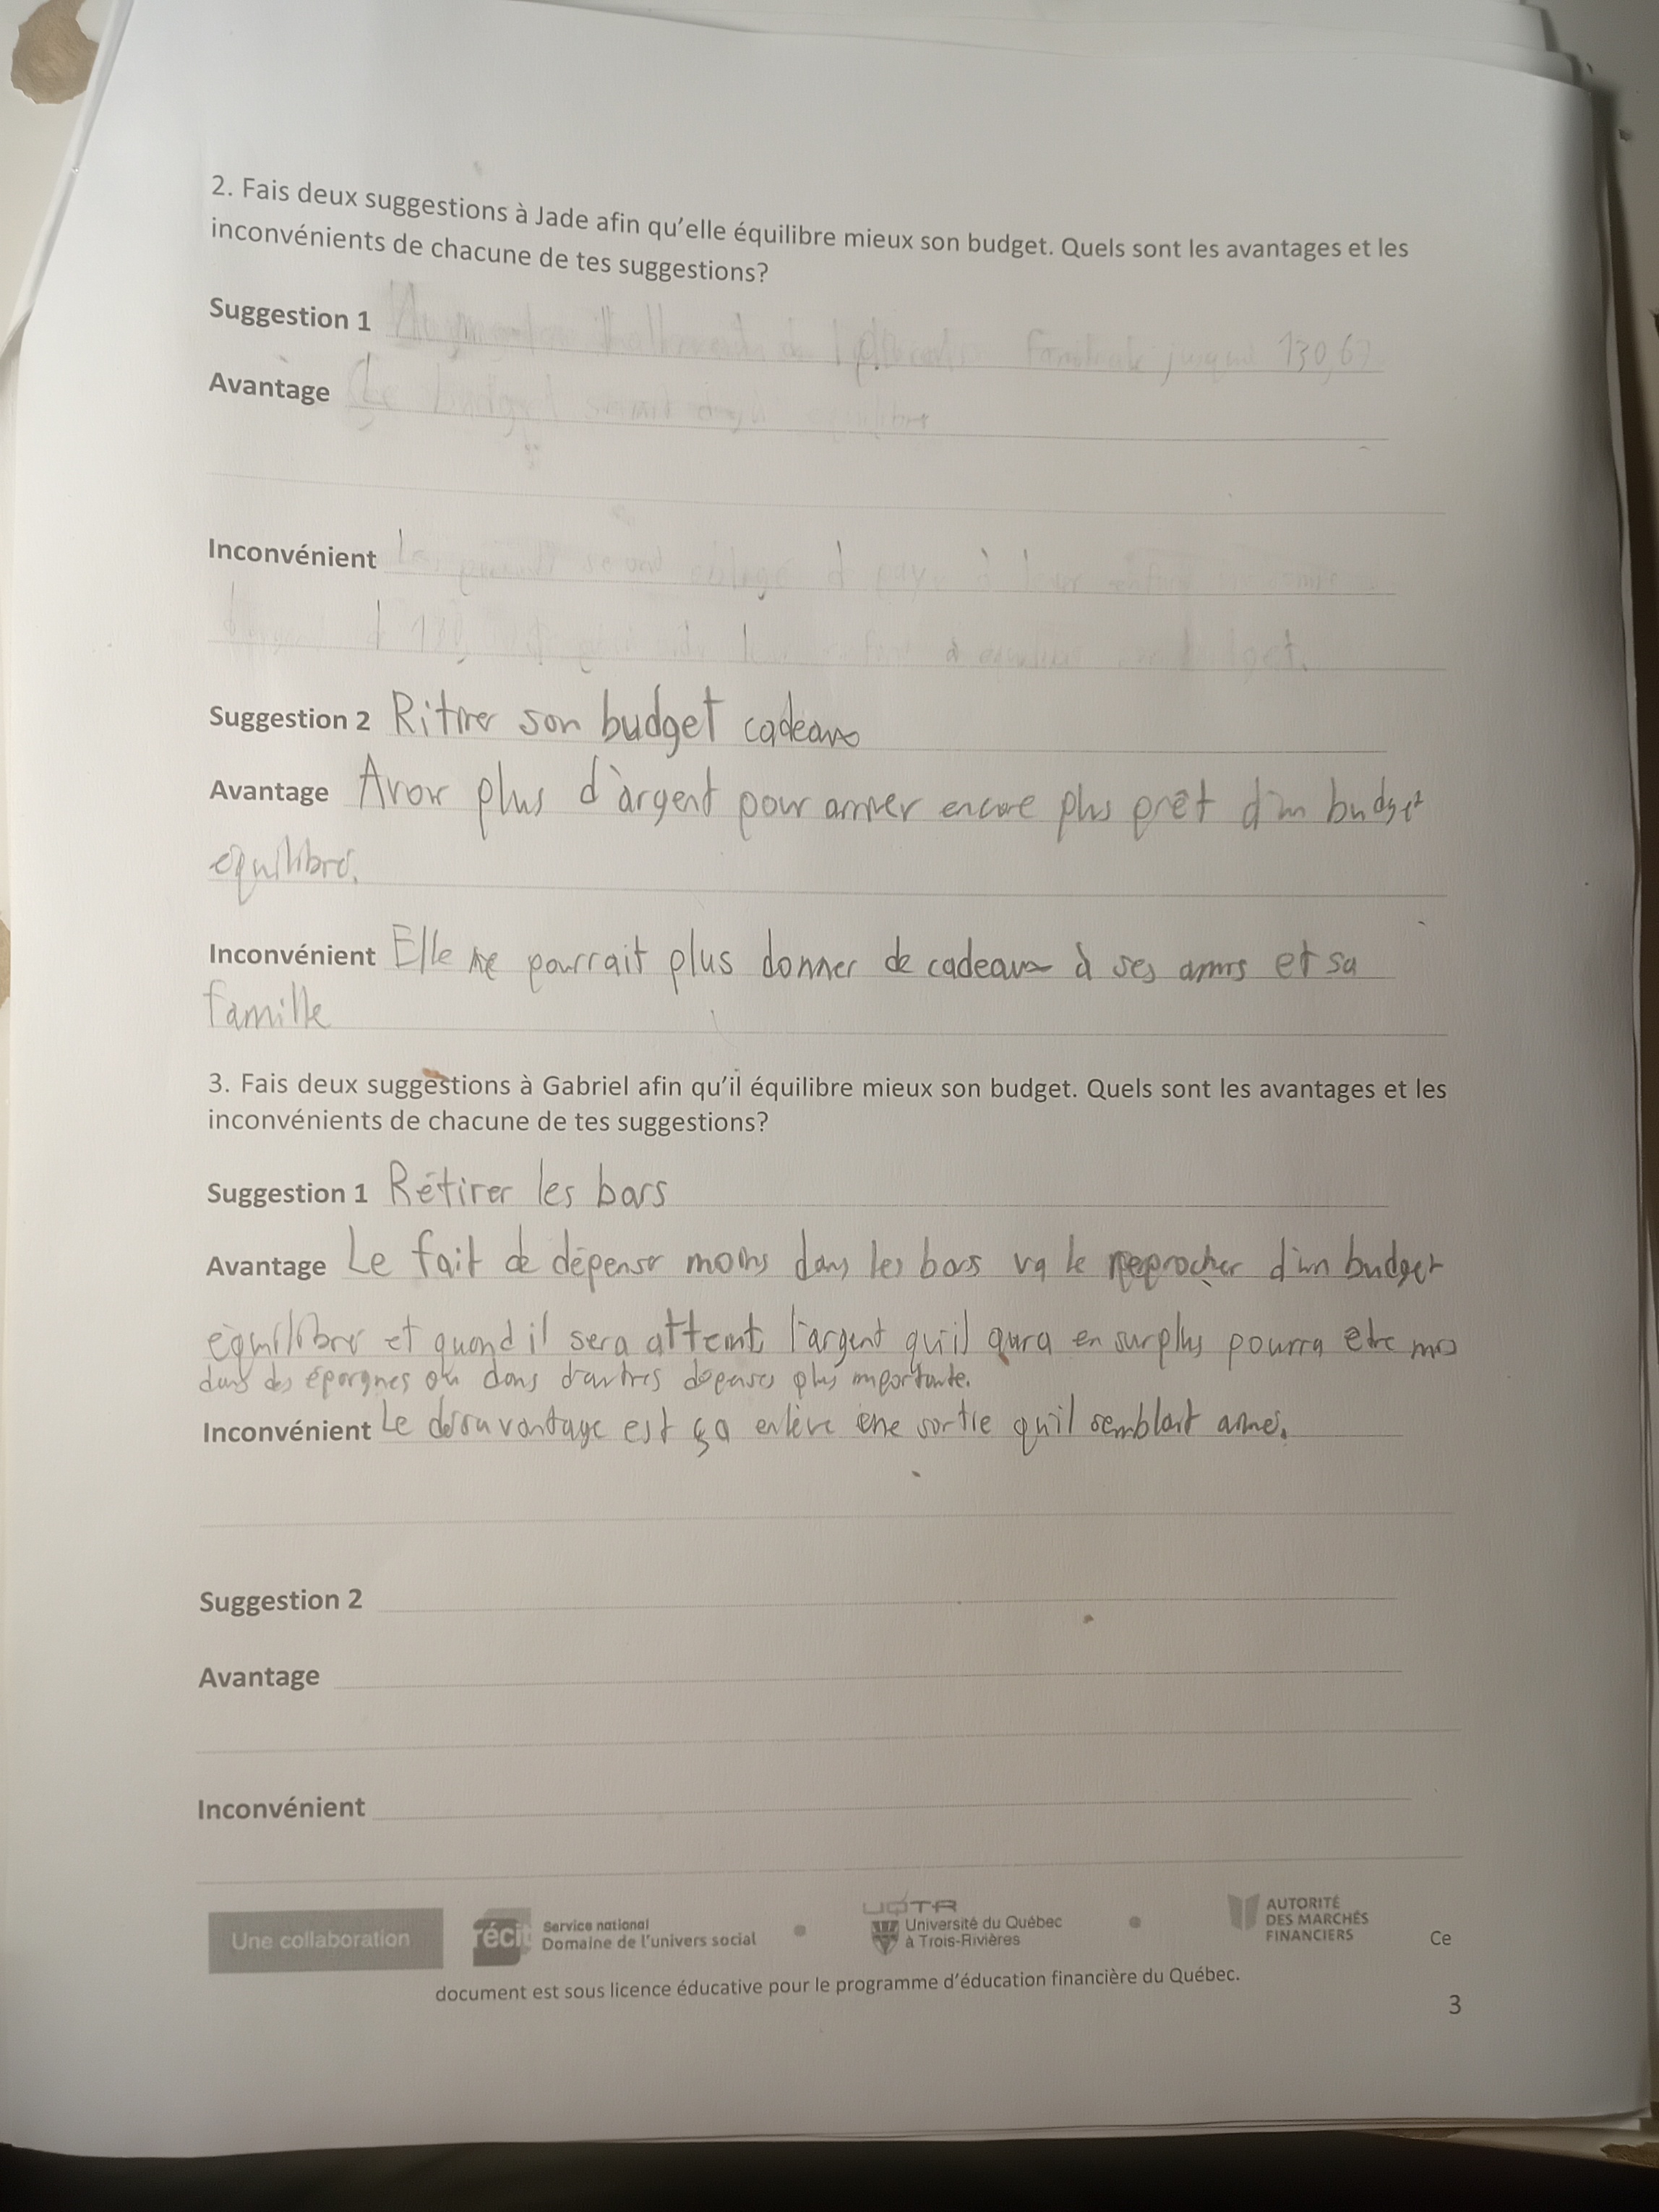 2. Fais deux suggestions à Jade afin qu'elle équilibre mieux son budget. Quels sont les avantages et les
inconvénients de chacune de tes suggestions?
Suggestion 1 familiale jusqu 130,67
Avantage Le budget serait
Inconvénient à leur
à budget.
Suggestion 2 Ritirer son budget cadeaux
Avantage Avoir plus d'argent pour arriver encore plus prêt d'un budget
équilibré.
Inconvénient Elle ne pourrait plus donner de cadeaux à ses amis et sa
famille
3. Fais deux suggestions à Gabriel afin qu'il équilibre mieux son budget. Quels sont les avantages et les
inconvénients de chacune de tes suggestions?
Suggestion 1 Rétirer les bars
Avantage Le fait de dépenser moins dans les bars va le reprocher d'un budget
équilibré et quand il sera atteint, l'argent qu'il aura en surplus pourra etre mis
dans des épargnes ou dans d'autres dépenses plus importante.
Inconvénient Le désavantage est ça enlève une sortie qu'il semblait aimé.
Suggestion 2
Avantage
Inconvénient
Une collaboration
récit
Service national
Domaine de l'univers social
UQTR
Université du Québec
à Trois-Rivières
AUTORITÉ
DES MARCHÉS
FINANCIERS
Ce
document est sous licence éducative pour le programme d'éducation financière du Québec.
3